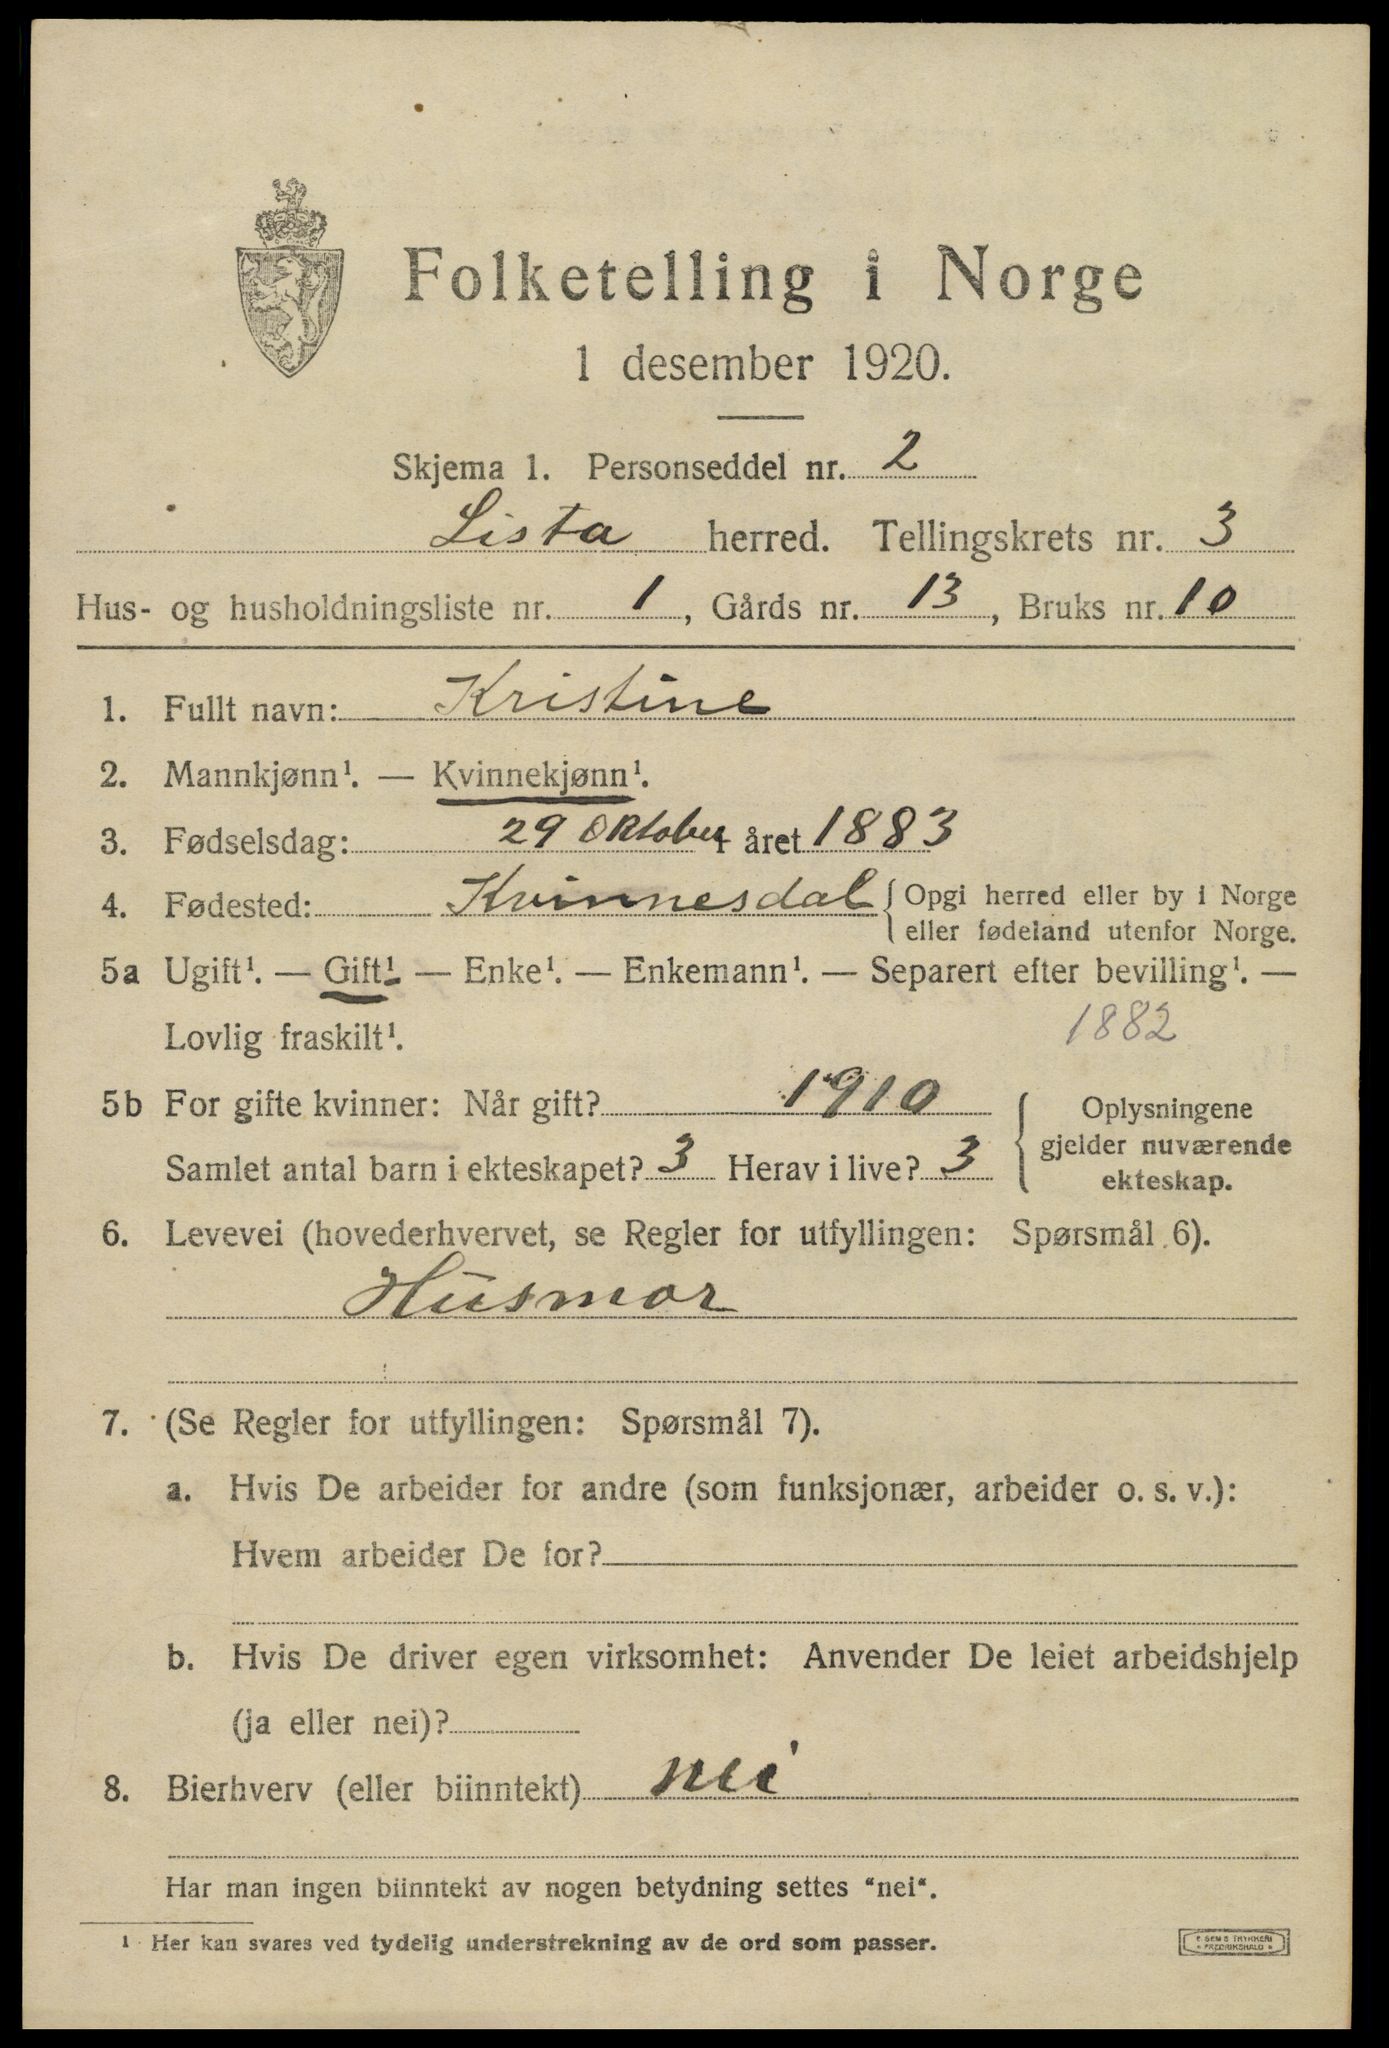 Folketelling i Norge
1 desember 1920.
Skjema 1. Personseddel nr. 2
Lista herred. Tellingskrets nr. 3
Hus- og husholdningsliste nr. 1, Gårds nr. 13, Bruks nr. 10
1. Fullt navn: Kristine
2. Mannkjønn¹. — Kvinnekjønn¹.
3. Fødselsdag: 29 Oktober i året 1883
4. Fødested: Kvinnesdal { Opgi herred eller by i Norge
eller fødeland utenfor Norge.
5a Ugift¹. — Gift¹. — Enke¹. — Enkemann¹. — Separert efter bevilling¹. —
Lovlig fraskilt¹. 1882
5b For gifte kvinner: Når gift? 1910 { Oplysningene
gjelder nuværende
Samlet antal barn i ekteskapet? 3 Herav i live? 3 ekteskap.
6. Levevei (hovederhvervet, se Regler for utfyllingen: Spørsmål 6).
Husmor
7. (Se Regler for utfyllingen: Spørsmål 7).
a. Hvis De arbeider for andre (som funksjonær, arbeider o. s. v.):
Hvem arbeider De for?
b. Hvis De driver egen virksomhet: Anvender De leiet arbeidshjelp
(ja eller nei)?
8. Bierhverv (eller biinntekt) nei
Har man ingen biinntekt av nogen betydning settes "nei".
¹ Her kan svares ved tydelig understrekning av de ord som passer.
E. SEM'S TRYKKERI
FREDRIKSHALD